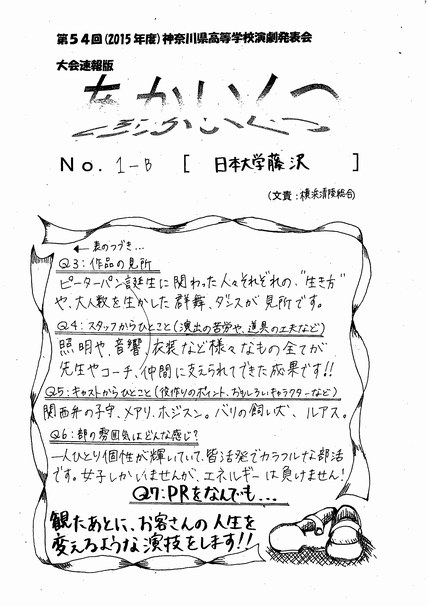 第54回(2015年度)神奈川県高等学校演劇発表会
大会速報版
あかいくつ
No. 1-B [ 日本大学藤沢 ]
(文責:横浜清陵総合)
← 表のつづき...
Q3:作品の見所
ピーターパン誕生に関わった人々それぞれの、"生き方"
や、大人数を生かした群舞、ダンスが見所です。
Q4:スタッフからひとこと(演出の苦労や、道具の工夫など)
照明や、音響、衣装など様々なもの全てが
先生やコーチ、仲間に支えられてできた成果です!!
Q5:キャストからひとこと(役作りのポイント、おもしろいキャラクターなど)
関西弁の子守、メアリ、ホジスン。バリの飼い犬、ルアス。
Q6:部の雰囲気はどんな感じ?
一人ひとり個性が輝いていて、皆活発でカラフルな部活
です。女子しかいませんが、エネルギーは負けません!
Q7:PRをなんでも...
観たあとに、お客さんの人生を
変えるような演技をします!!